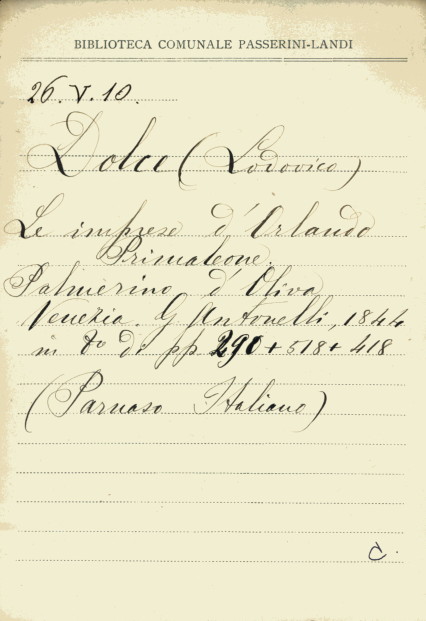 BIBLIOTECA COMUNALE PASSERINI-LANDI
26. V. 10.
Dolce (Lodovico)
Le imprese d'Orlando
Primaleone.
Palmerino d'Oliva
Venezia. G Antonelli, 1844
in 8º di pp 290 + 518 + 418
(Parnaso Italiano)
C.